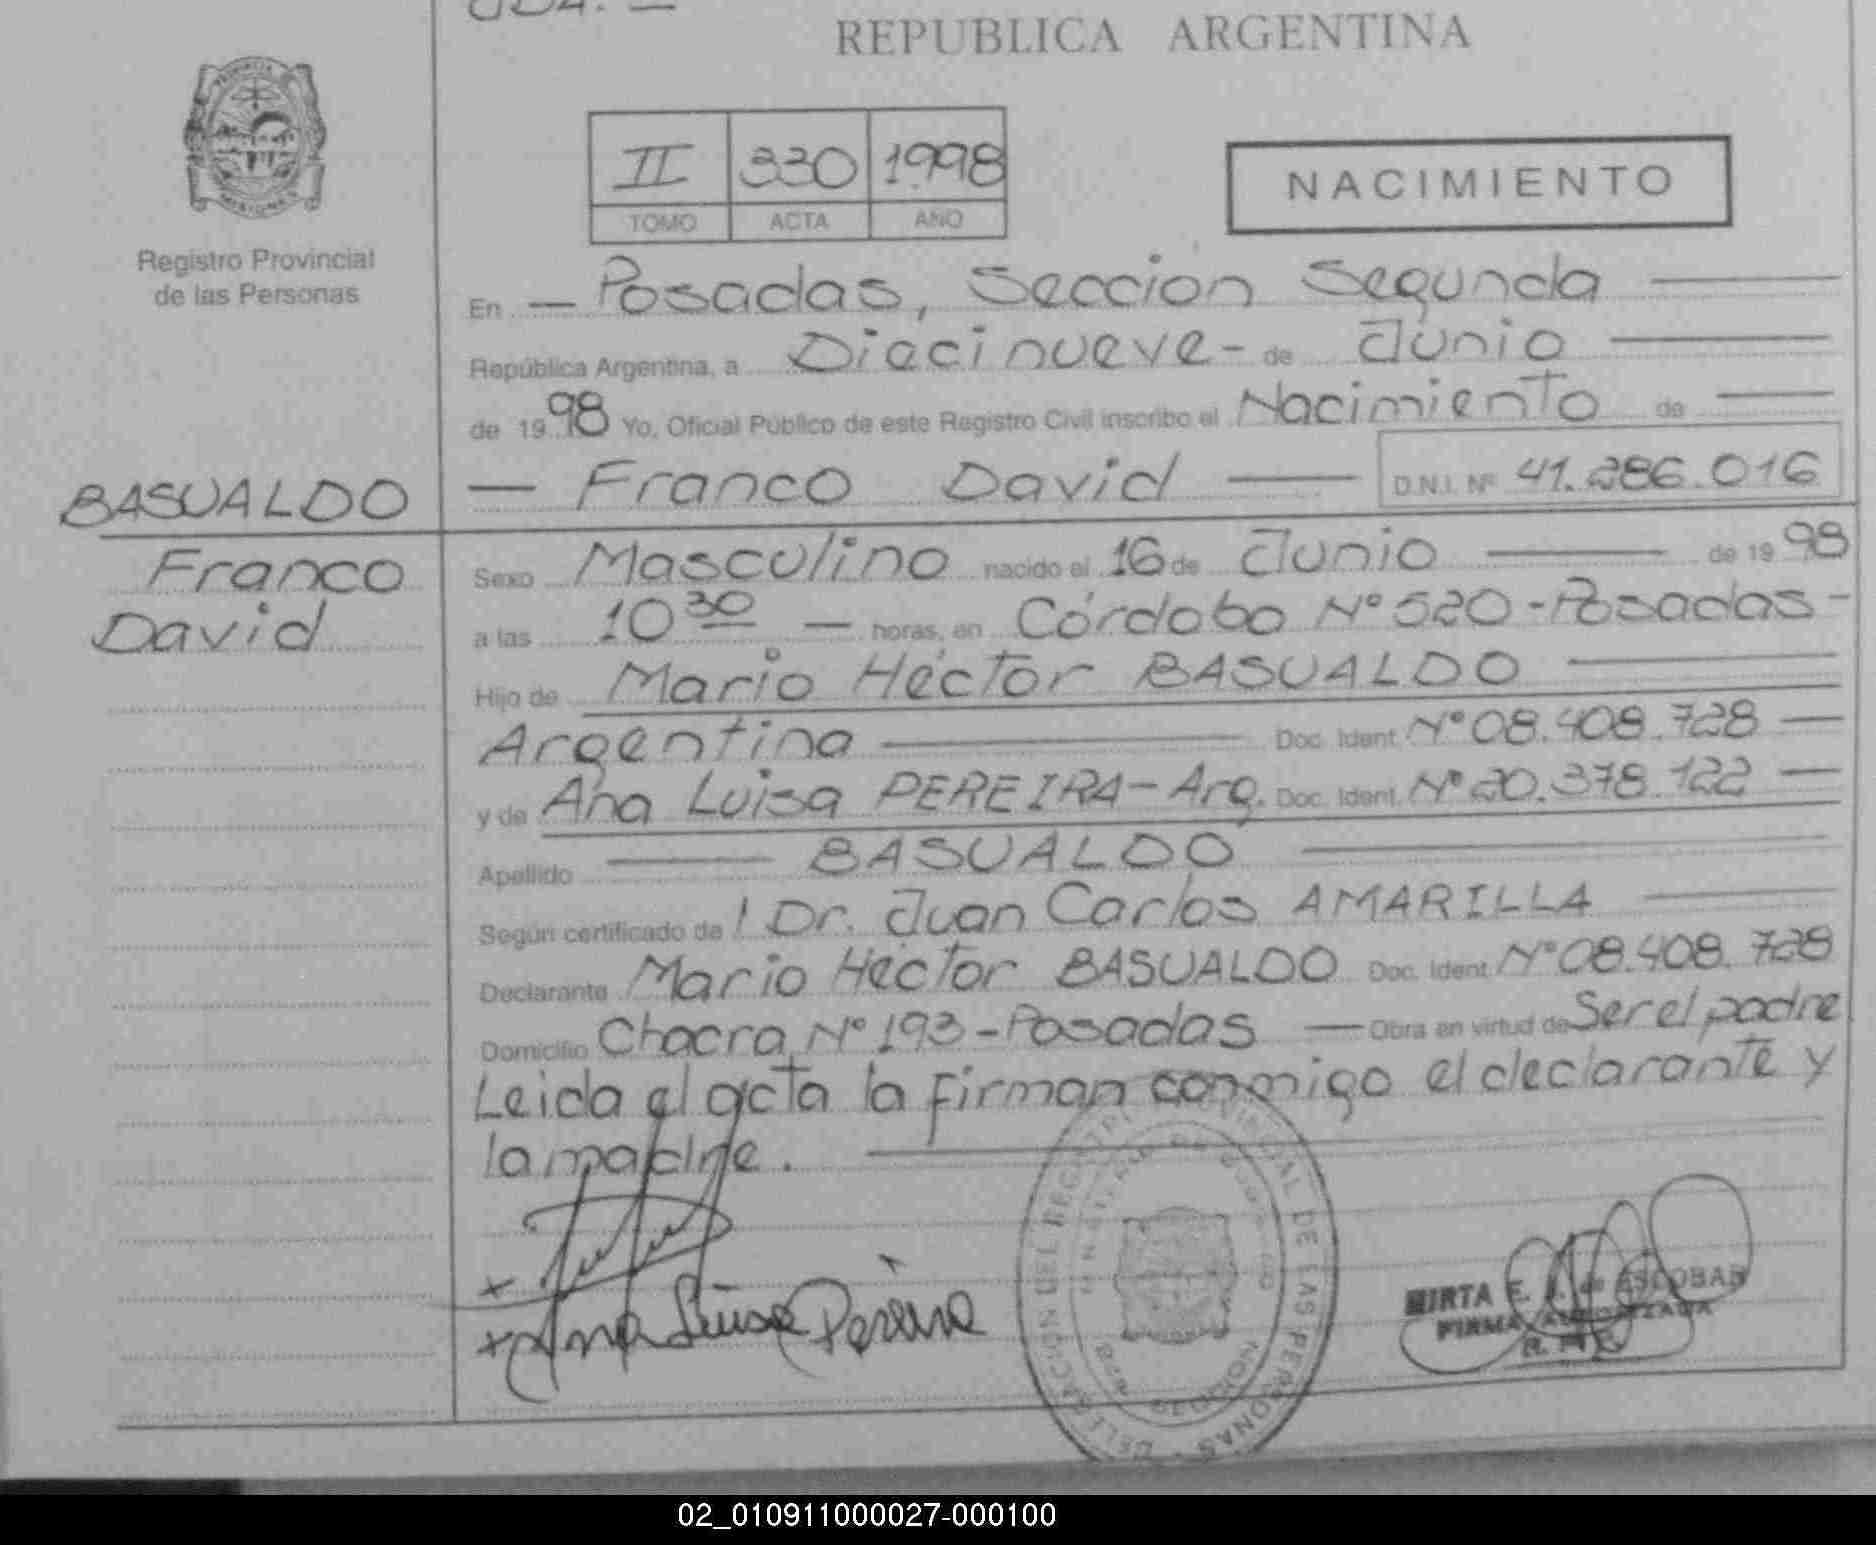 REPUBLICA ARGENTINA
PROVINCIA
MISIONES
Registro Provincial
de las Personas
II 330 1998
TOMO ACTA AÑO
NACIMIENTO
En — Posadas, Seccion Segunda —
República Argentina, a Diecinueve - de Junio —
de 19 98 Yo, Oficial Público de este Registro Civil inscribo el Nacimiento de —
— Franco David — D.N.I. Nº 41.286.016
BASUALDO
Franco
David
Sexo Masculino nacido el 16 de Junio — de 19 98
a las 10 30 — horas, en Córdoba Nº 520 - Posadas -
Hijo de Mario Héctor BASUALDO —
Argentina — Doc. Ident. Nº 08.408.728 —
y de Ana Luisa PEREIRA - Arg. Doc. Ident. Nº 20.378.122 —
Apellido — BASUALDO —
Según certificado de Dr. Juan Carlos AMARILLA —
Declarante Mario Héctor BASUALDO Doc. Ident. Nº 08.408.728
Domicilio Chacra Nº 193 - Posadas — Obra en virtud de Ser el padre
Leida el acta la firman conmigo el declarante y
la madre. —
Ana Luisa Pereira
DELEGACION DEL REGISTRO PROVINCIAL DE LAS PERSONAS
MIRTA E. de ESCOBAR
FIRMA AUTORIZADA
02_010911000027-000100